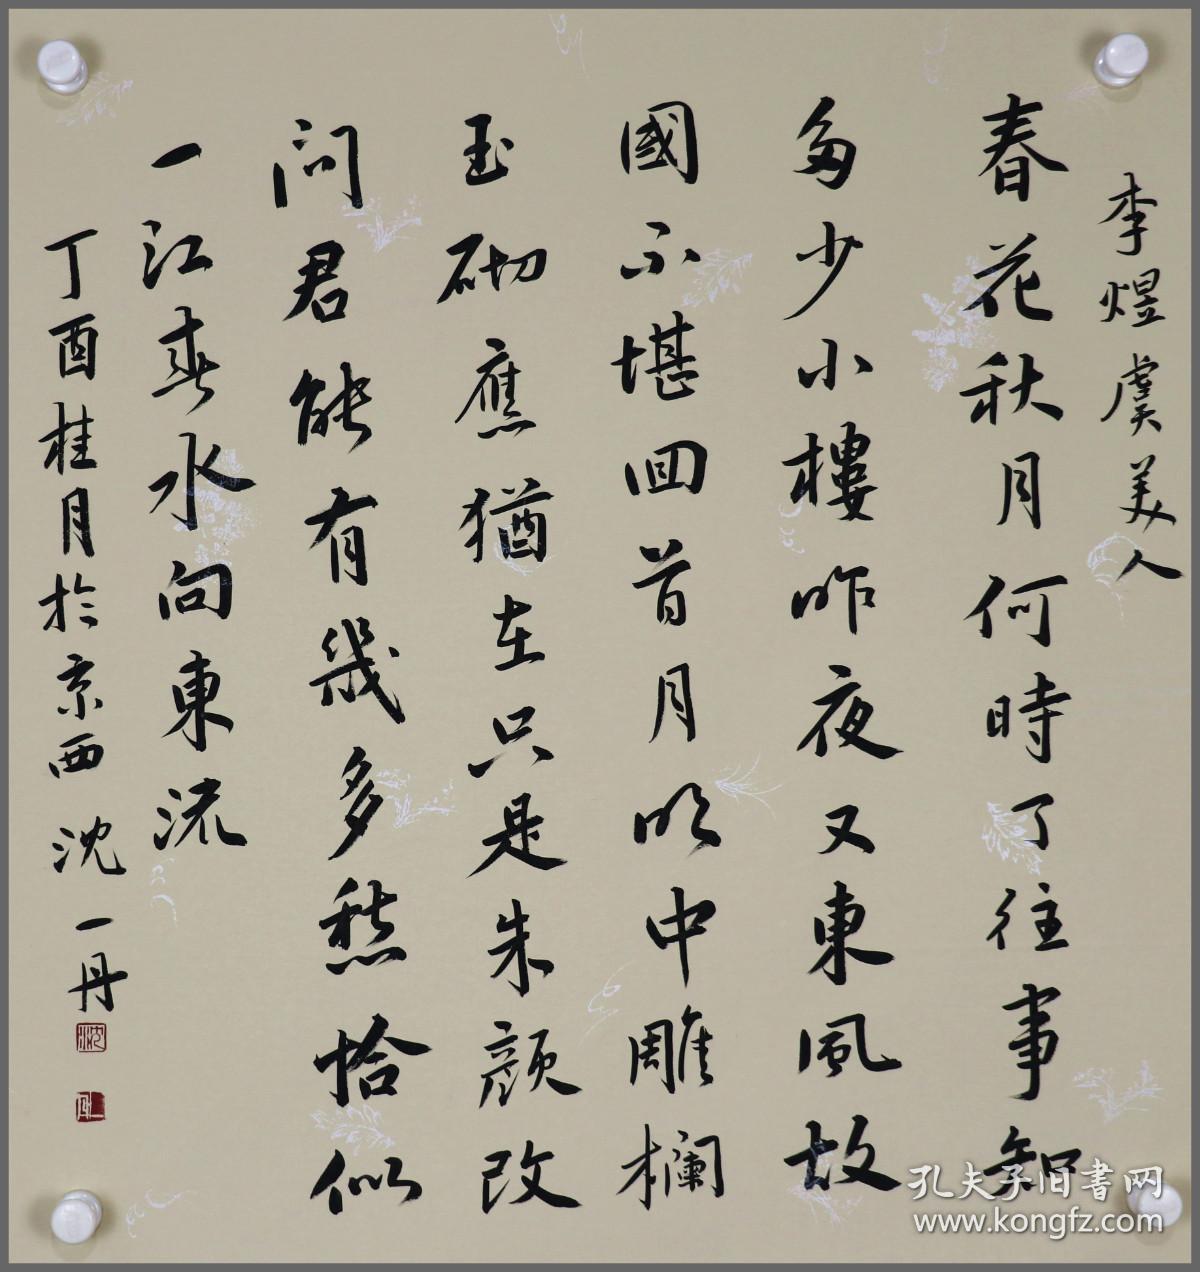 李煜虞美人
春花秋月何時了往事知
多少小樓昨夜又東風故
國不堪回首月明中雕欄
玉砌應猶在只是朱顏改
問君能有幾多愁恰似
一江春水向東流
丁酉桂月於京西沈一丹
沈
一丹
孔夫子旧书网
www.kongfz.com